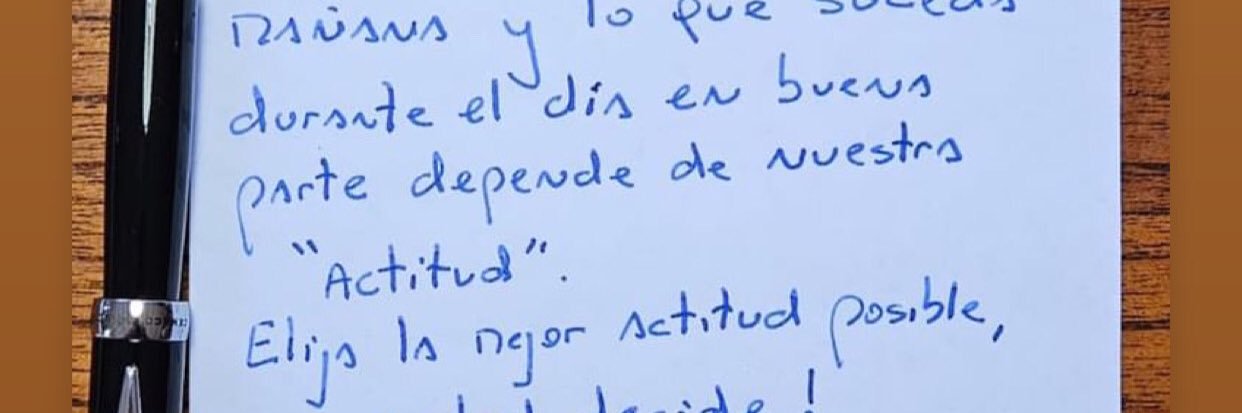 mañana y lo que suceda
durante el día en buena
parte depende de nuestra
"Actitud".
Elija la mejor actitud posible,
decide!